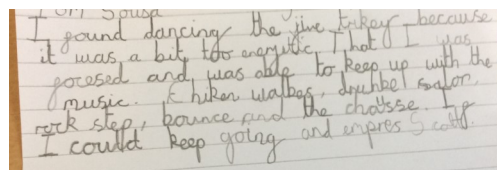 I gound dancing the jive trikey because
it was a bit too energitic That I was
gocesed and was able to keep up with the
music. chiken walkes,
rock step, bounce and the chatsse. I
I could keep going and empres Scott.